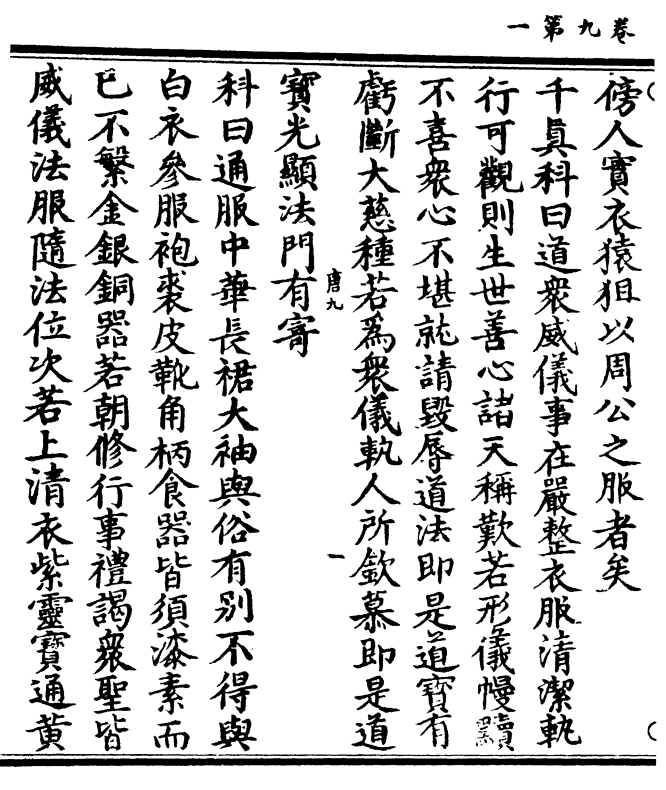 卷九第一
傍人實衣猿狙以周公之服者矣
千眞科曰道衆威儀事在嚴整衣服清潔軌
行可觀則生世善心諸天稱歎若形儀慢黷
不喜衆心不堪就請毀辱道法即是道寶有
虧斷大慈種若爲衆儀軌人所欽慕即是道
寶光顯法門有寄
唐九
一
科曰通服中華長裙大袖與俗有别不得與
白衣參服袍裘皮靴角柄食器皆須漆素而
已不繫金銀銅器若朝修行事禮謁衆聖皆
威儀法服隨法位次若上清衣紫靈寶通黄